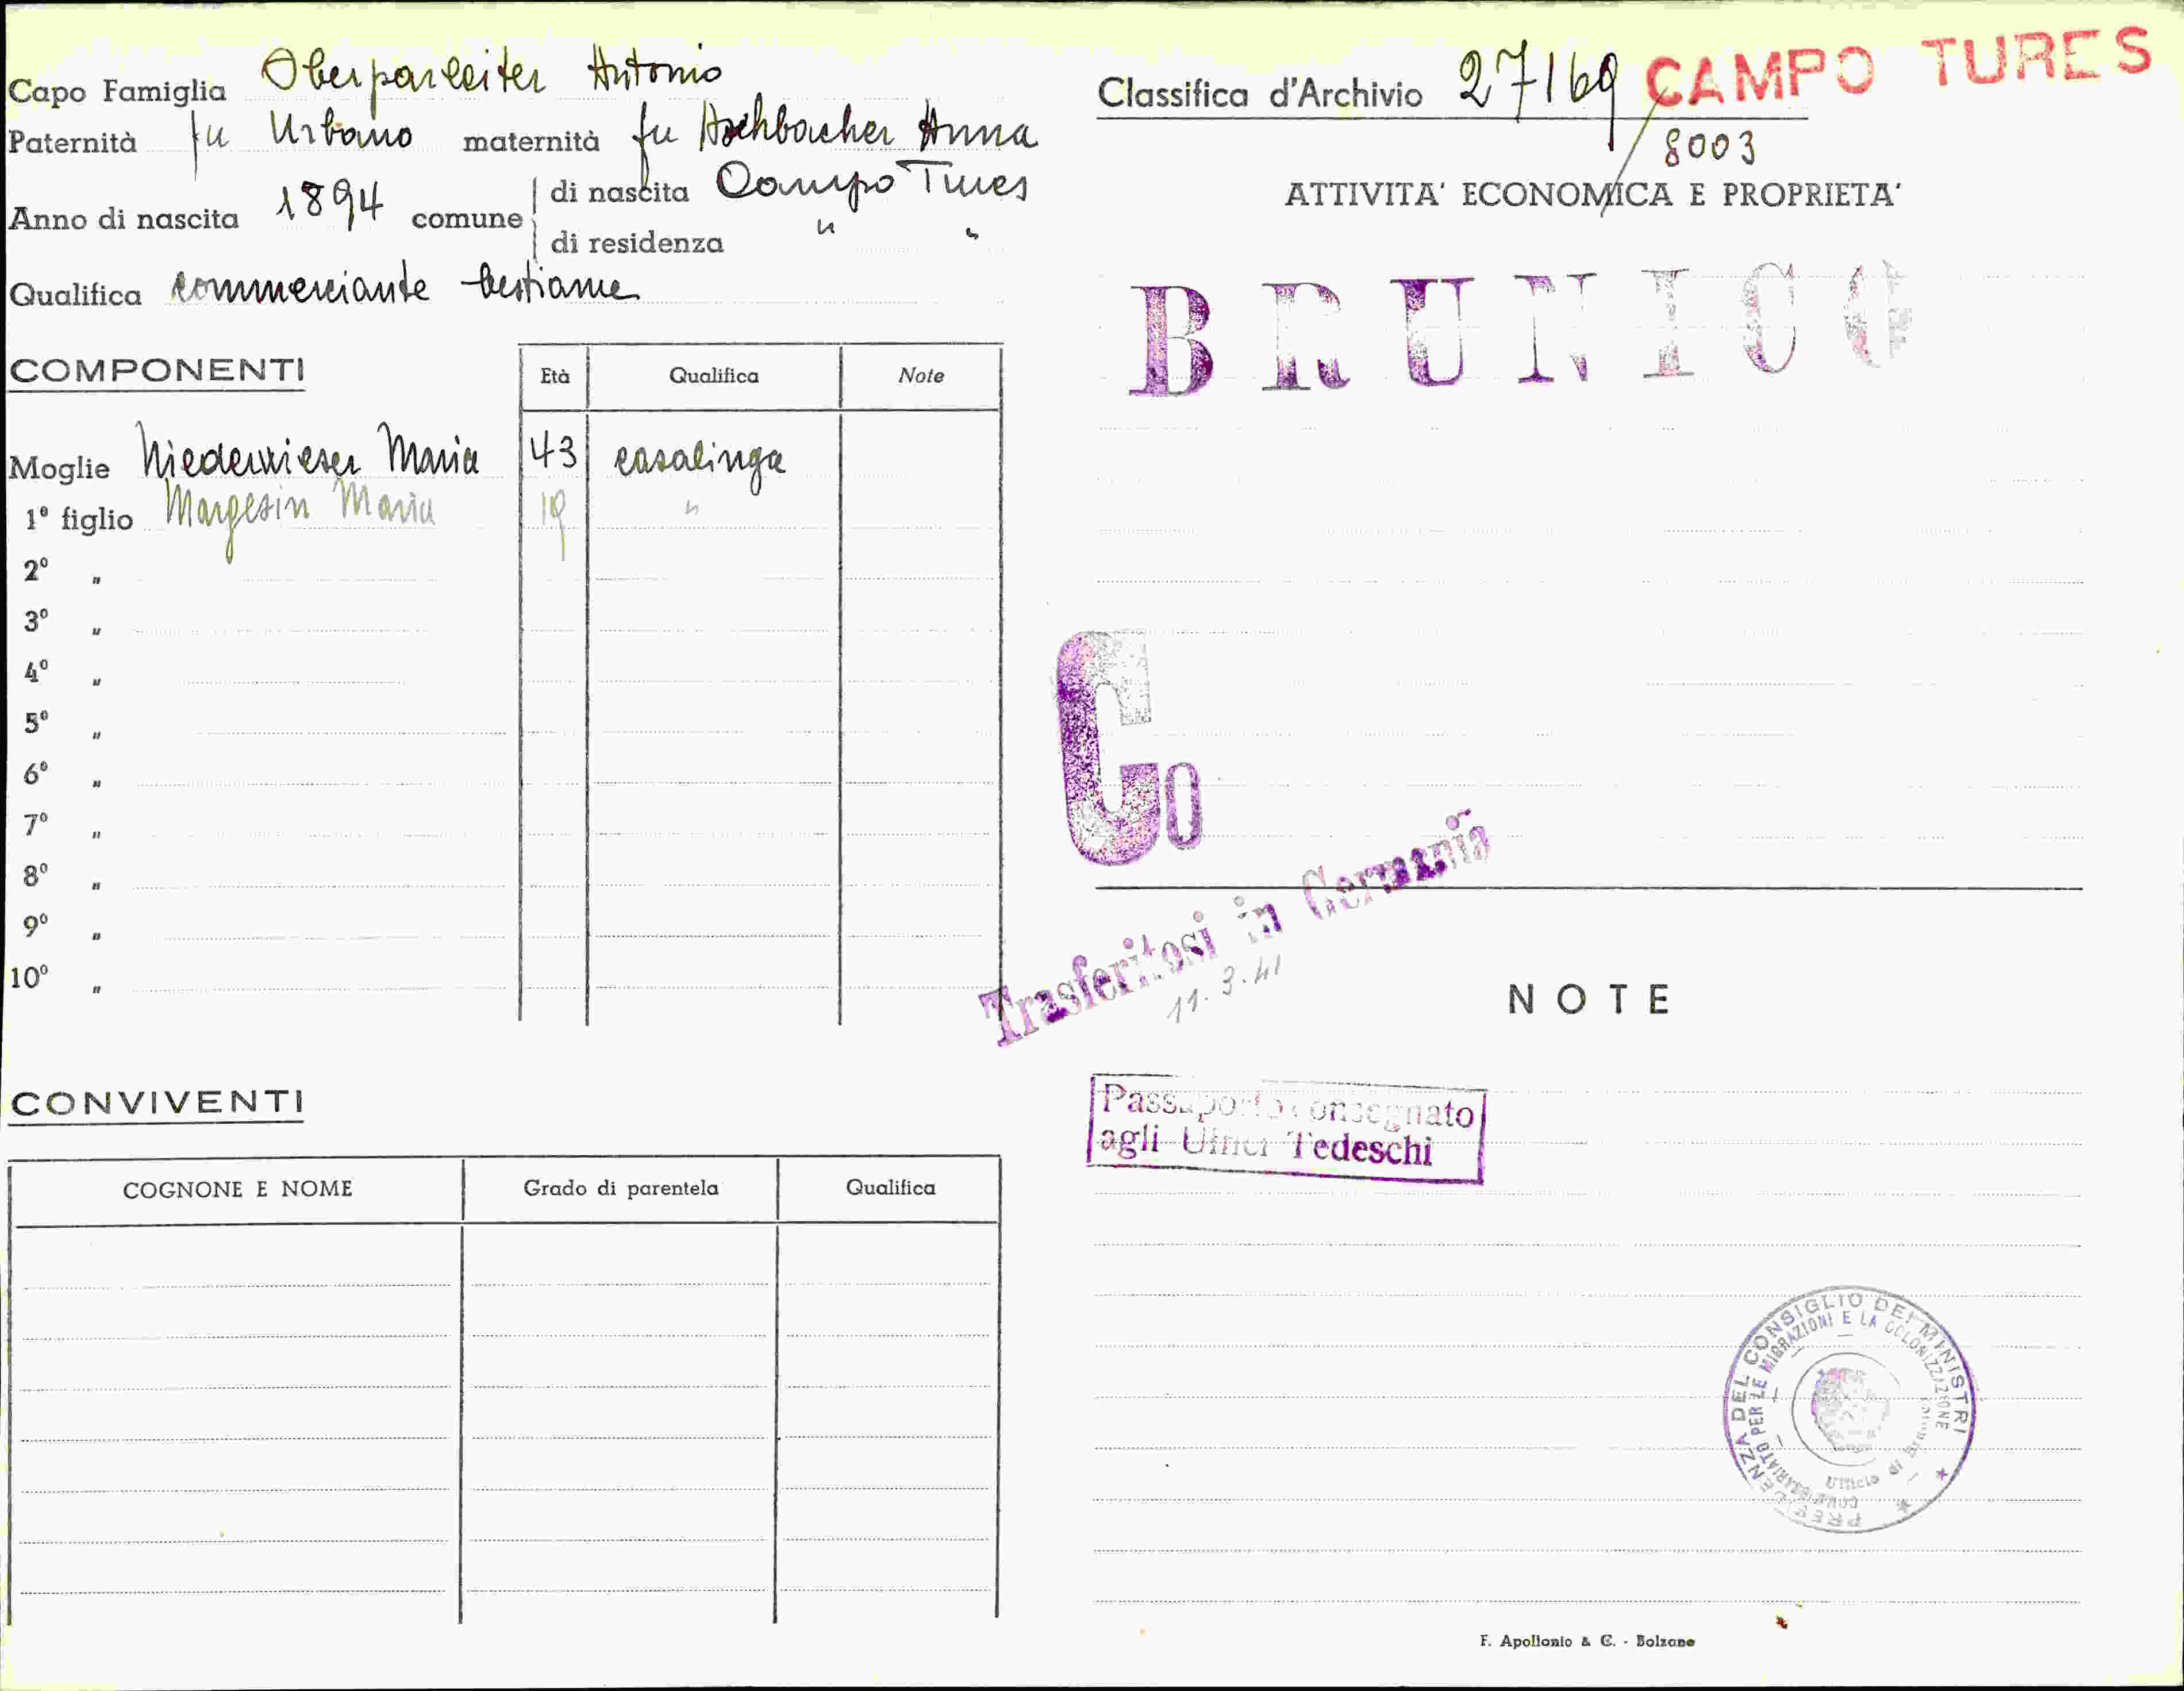 Capo Famiglia Oberparleiter Antonio
Paternità fu Urbano maternità fu Aschbacher Anna
Anno di nascita 1894 comune di nascita Campo Tures
di residenza " "
Qualifica commerciante bestiame
COMPONENTI
Età Qualifica Note
Moglie Niederwieser Maria 43 casalinga
1º figlio Margesin Maria 19 "
2º "
3º "
4º "
5º "
6º "
7º "
8º "
9º "
10º "
CONVIVENTI
COGNONE E NOME Grado di parentela Qualifica
Classifica d'Archivio 27169 CAMPO TURES
/ 8003
ATTIVITA' ECONOMICA E PROPRIETA'
BRUNICO
Co
Trasferitosi in Germania
11.3.41
NOTE
Passaporto consegnato
agli Uffici Tedeschi
PRESIDENZA DEL CONSIGLIO DEI MINISTRI
COMMISSARIATO PER LE MIGRAZIONI E LA COLONIZZAZIONE
Ufficio di Brunico
F. Apollonio & C. - Bolzano